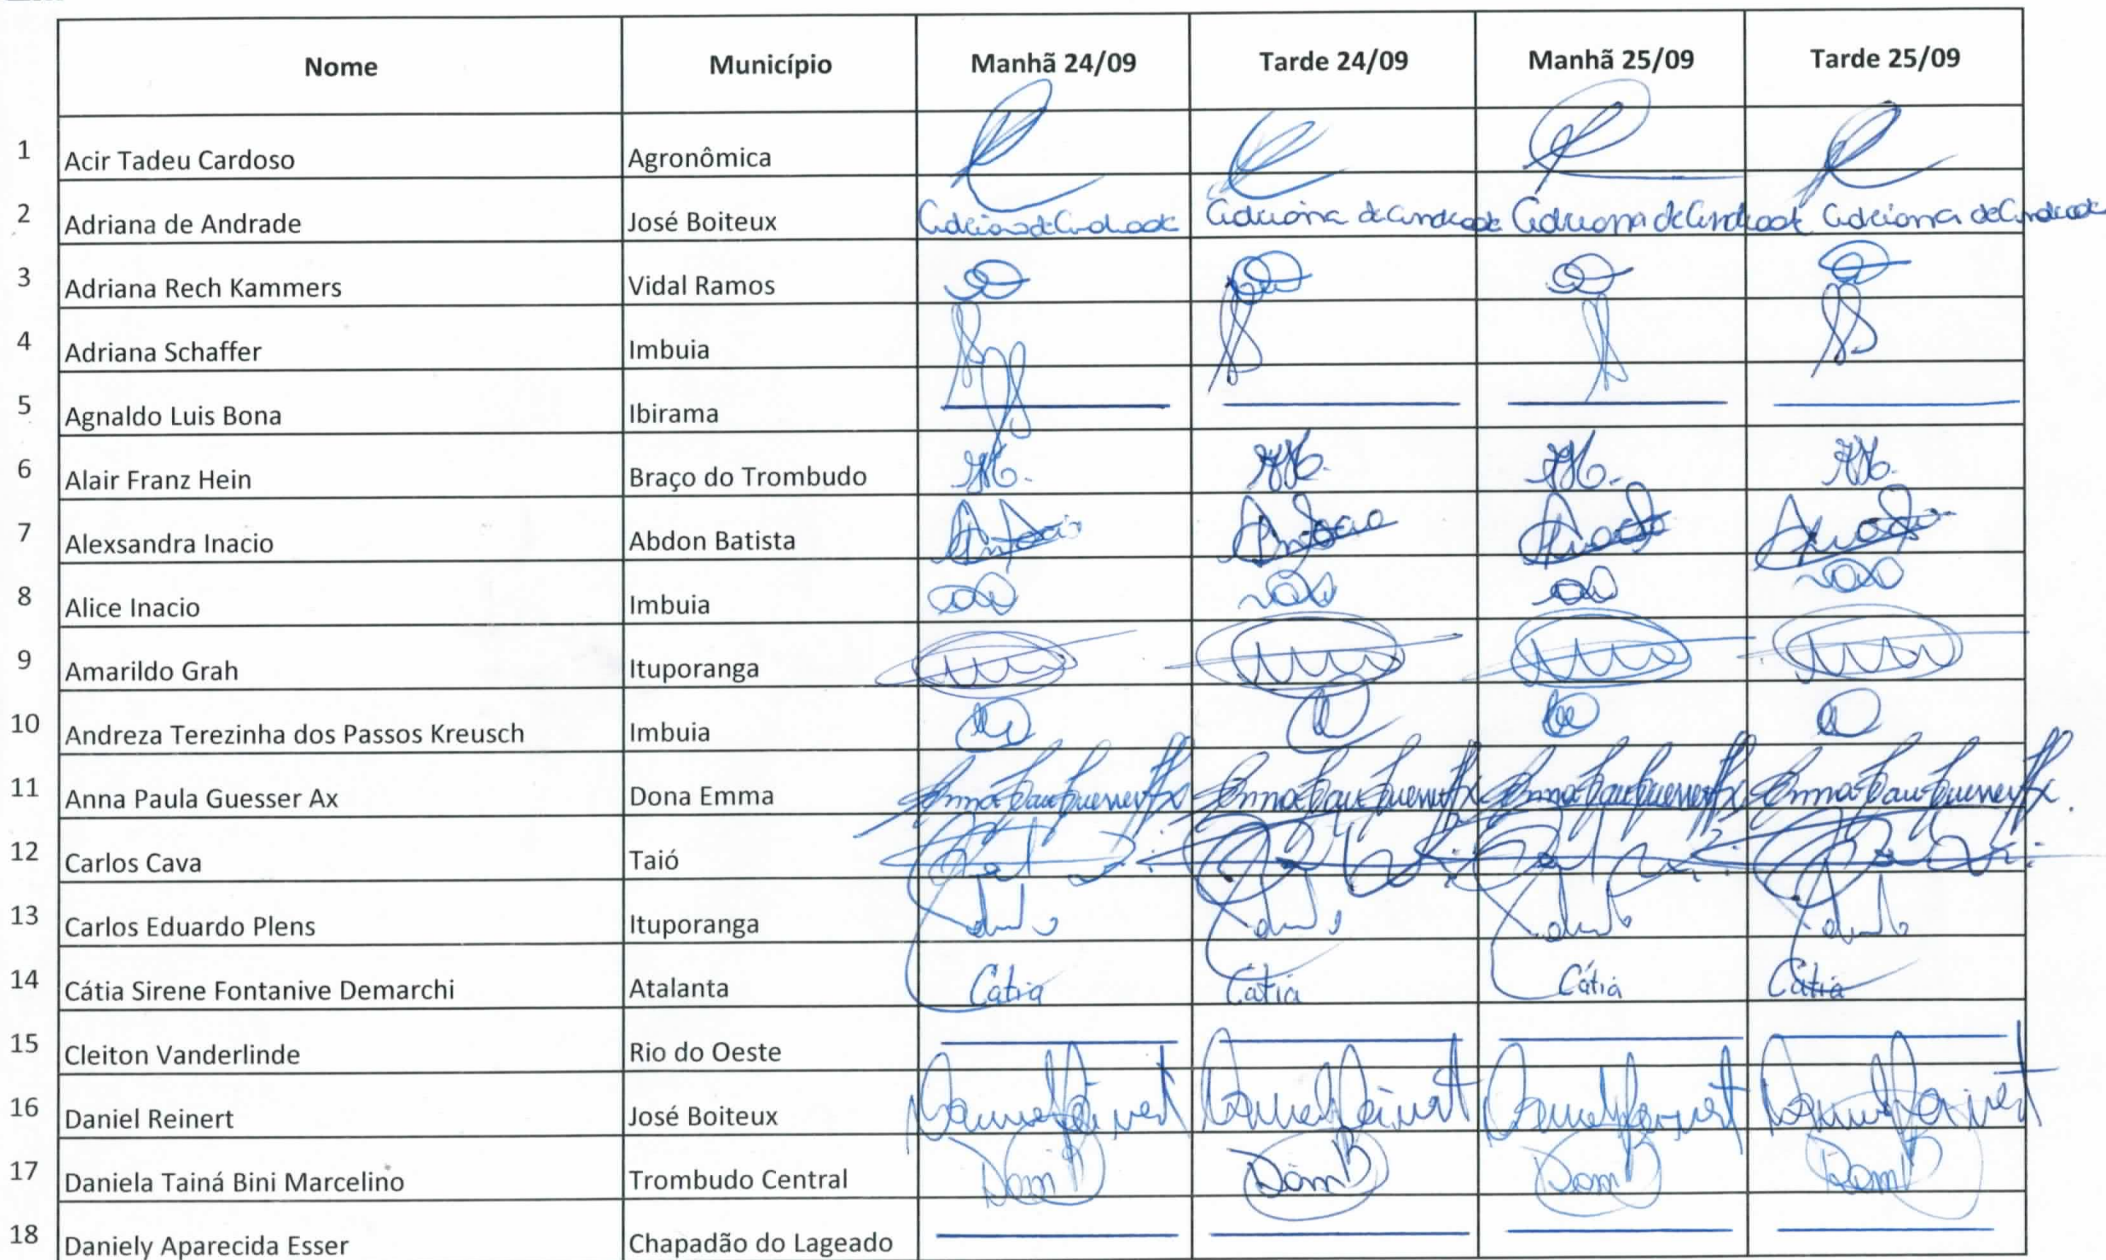 Nome Município Manhã 24/09 Tarde 24/09 Manhã 25/09 Tarde 25/09
1 Acir Tadeu Cardoso Agronômica
2 Adriana de Andrade José Boiteux Adriana de Andrade Adriana de Andrade Adriana de Andrade Adriana de Andrade
3 Adriana Rech Kammers Vidal Ramos
4 Adriana Schaffer Imbuia
5 Agnaldo Luis Bona Ibirama
6 Alair Franz Hein Braço do Trombudo
7 Alexsandra Inacio Abdon Batista
8 Alice Inacio Imbuia
9 Amarildo Grah Ituporanga
10 Andreza Terezinha dos Passos Kreusch Imbuia
11 Anna Paula Guesser Ax Dona Emma
12 Carlos Cava Taió
13 Carlos Eduardo Plens Ituporanga
14 Cátia Sirene Fontanive Demarchi Atalanta Cátia Cátia Cátia Cátia
15 Cleiton Vanderlinde Rio do Oeste
16 Daniel Reinert José Boiteux Daniel Reinert Daniel Reinert Daniel Reinert Daniel Reinert
17 Daniela Tainá Bini Marcelino Trombudo Central
18 Daniely Aparecida Esser Chapadão do Lageado